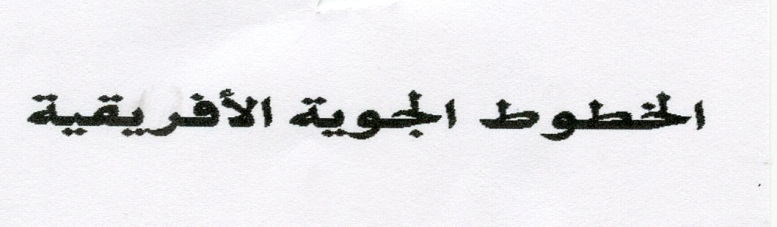 الخطوط الجوية الأفريقية